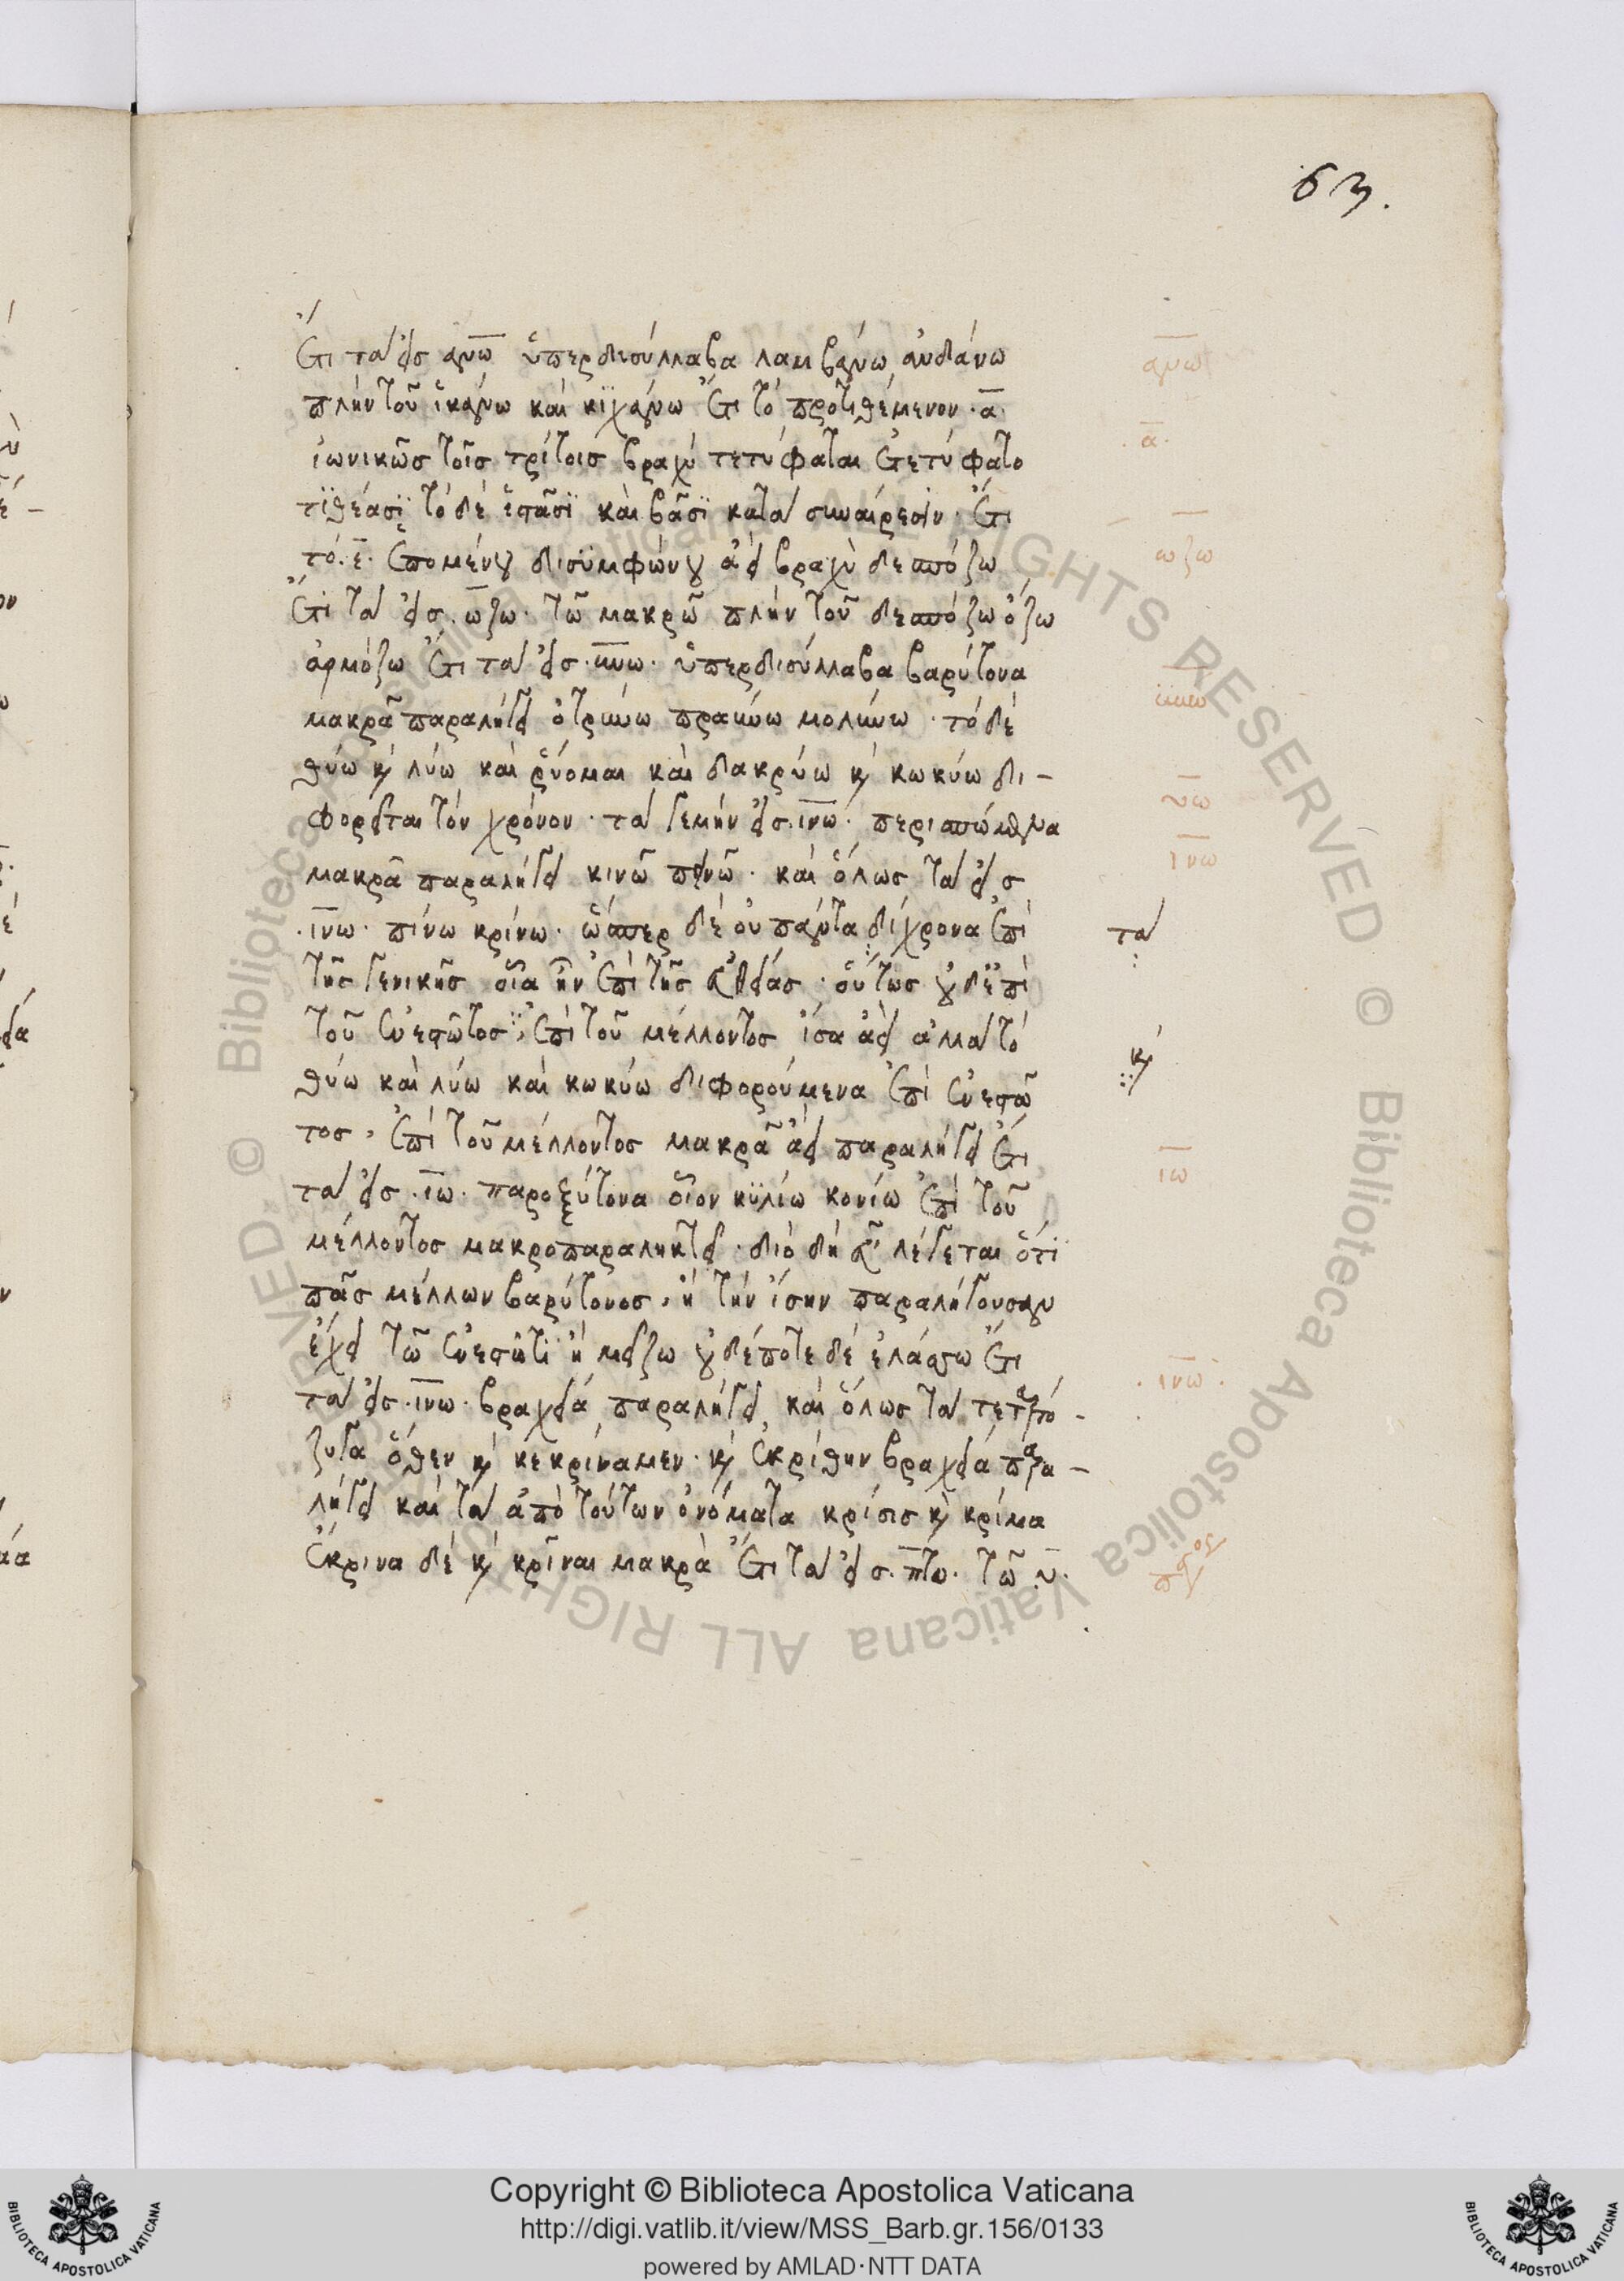 63.
Ἔτι τὰ εἰς ανω ὑπερδισύλλαβα λαμβάνω ἁνδάνω
πλὴν τοῦ ἱκάνω καὶ κιχάνω Ἔτι τὸ προτιθέμενον .α.
ἰωνικῶς τοῖς τρίτοις βραχύ τετύφαται ἐτετύφατο
τιθέασι τὸ δὲ ἑστᾶσϊ καὶ βᾶσϊ κατὰ συναίρεσιν. Ἔτι
τό .ε. ἑπομένου δισυμφώνου ἀεὶ βραχὺ δεσπόζω
Ἔτι τὰ εἰς .ωζω. τῶ μακρῶ πλὴν τοῦ δεσπόζω ὄζω
ἁρμόζω Ἔτι τὰ εἰς .υνω. ὑπερδισύλλαβα βαρύτονα
μακρᾶ παραλήγει ὀτρύνω πραύνω μολύνω. τὸ δὲ
θύω κὶ λύω καὶ ῥύομαι καὶ δακρύω κὶ κωκύω δι-
φορεῖται τὸν χρόνον. τὰ γεμὴν εἰς .ινω. περισπώμενα
μακρᾶ παραλήγει κινῶ πεινῶ. καὶ ὅλως τὰ εἰς
.ινω. πίνω κρίνω. ὥσπερ δὲ οὐ πάντα δίχρονα ἐπὶ
τῆς γενικῆς οἷα ἦν ἐπὶ τῆς εὐθείας. οὕτως οὐδ' ἐπὶ
τοῦ ἐνεστῶτος, ἐπὶ τοῦ μέλλοντος ἴσα ἀεὶ ἀλλὰ τὸ
θύω καὶ λύω καὶ κωκύω διφορούμενα ἐπὶ ἐνεστῶ
τος, ἐπὶ τοῦ μέλλοντος μακρᾶ ἀεὶ παραλήγει Ἔτι
τὰ εἰς .ιω. παροξύτονα οἷον κυλίω κονίω ἐπὶ τοῦ
μέλλοντος μακροπαραληκτεῖ. διὸ δὴ κὶ λέγεται ὅτϊ
πᾶς μέλλων βαρύτονος, ἢ τὴν ἴσην παραλήγουσαν
ἔχει τῶ ἐνεστῶτϊ ἢ μείζω οὐδέποτε δὲ ἐλάσσω Ἔτι
τὰ εἰς .ινω. βραχεία παραλήγει καὶ ὅλως τὰ
ὅθεν κὶ κεκρίναμεν. κὶ ἐκρίθην βραχεία παρα-
λήγει καὶ τὰ ἀπὸ τούτων ὀνόματα κρίσις κὶ κρίμα
ἔκρινα δὲ κὶ κρῖναι μακρὰ Ἔτι τὰ εἰς .πτω. τῶ .υ.
ανω
.α.
ωζω
υνω
υω
ινω
τὰ
κὶ
ιω
.ινω.
Copyright © Biblioteca Apostolica Vaticana
http://digi.vatlib.it/view/MSS_Barb.gr.156/0133
powered by AMLAD·NTT DATA
BIBLIOTECA APOSTOLICA VATICANA
BIBLIOTECA APOSTOLICA VATICANA